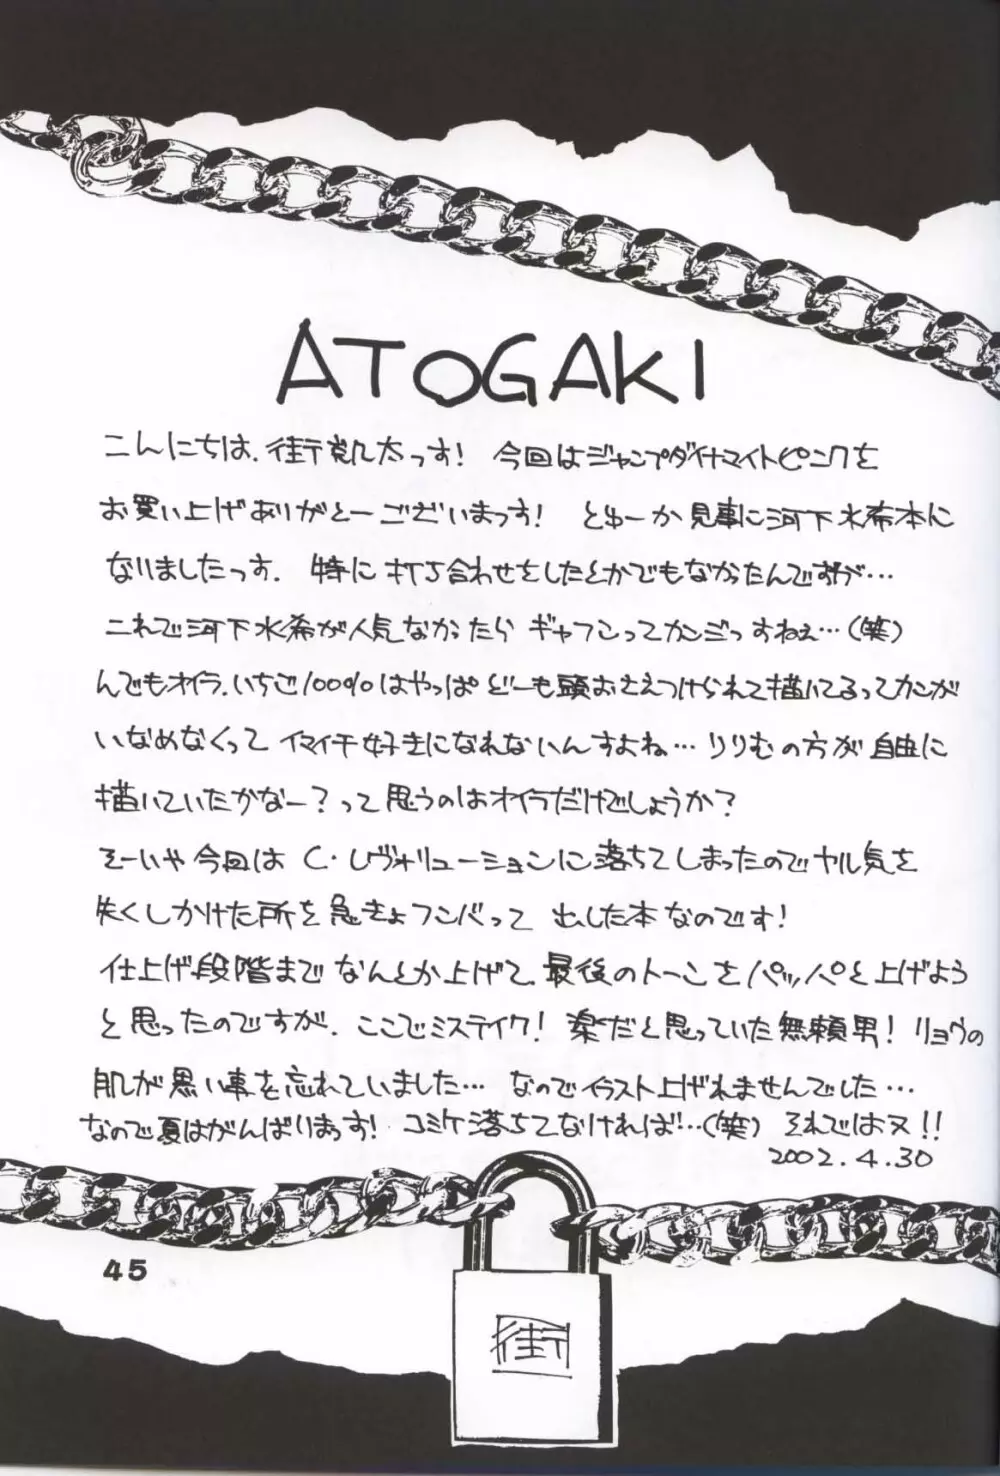 ATOGAKI
こんにちは、街凱太っす! 今回はジャンプダイナマイトピンクを
お買い上げありがとーございまっす! とゆーか見事に河下水希本に
なりましたっす. 特に打ち合わせをしたとかでもなかったんですが…
これで河下水希が人気なかったらギャフンってカンジっすねぇ…(笑)
んでもオイラ、いちご100%はやっぱどーも頭おさえつけられて描いてるってカンが
いなめなくってイマイチ好きになれないんすよね…りりむの方が自由に
描いていたかなー?って思うのはオイラだけでしょうか?
そーいや今回はC・レヴォリューションに落ちてしまったのでヤル気を
失くしかけた所を急きょフンバって出した本なのです!
仕上げ段階までなんとか上げて、最後のトーンをパッパと上げよう
と思ったのですが、ここでミステイク! 楽だと思っていた無頼男! リョウの
肌が黒い事を忘れていました…なのでイラスト上げれませんでした…
なので夏はがんばりまっす! コミケ落ちてなければ!…(笑) それではヌ!!
2002.4.30
45
街